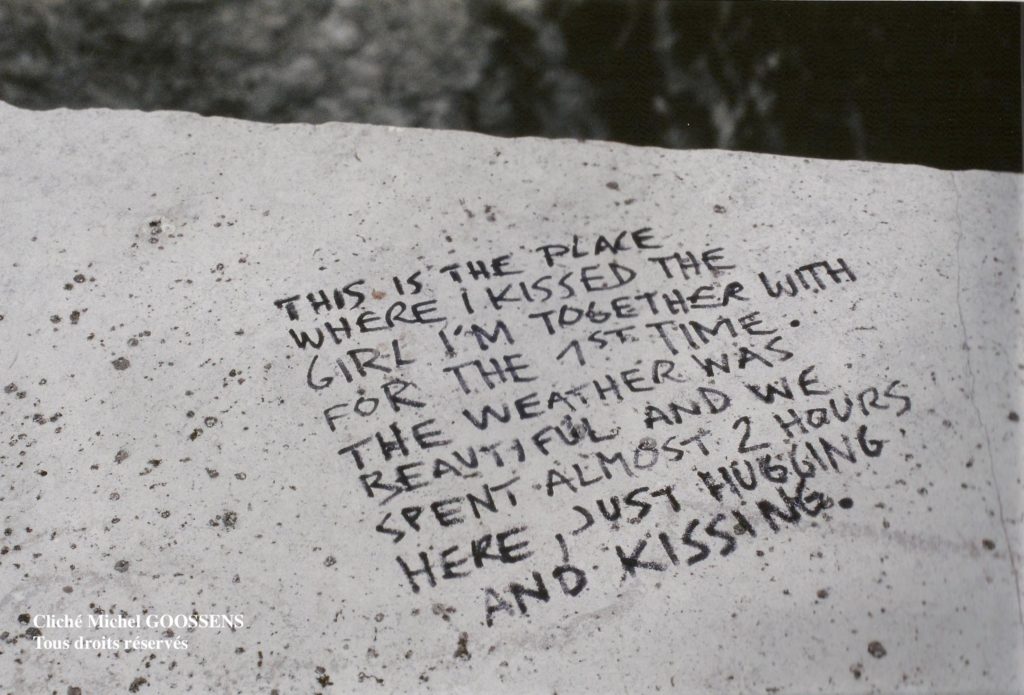 THIS IS THE PLACE
WHERE I KISSED THE
GIRL I'M TOGETHER WITH
FOR THE 1ST TIME.
THE WEATHER WAS
BEAUTIFUL AND WE
SPENT ALMOST 2 HOURS
HERE, JUST HUGGING
AND KISSING.
Cliché Michel GOOSSENS
Tous droits réservés